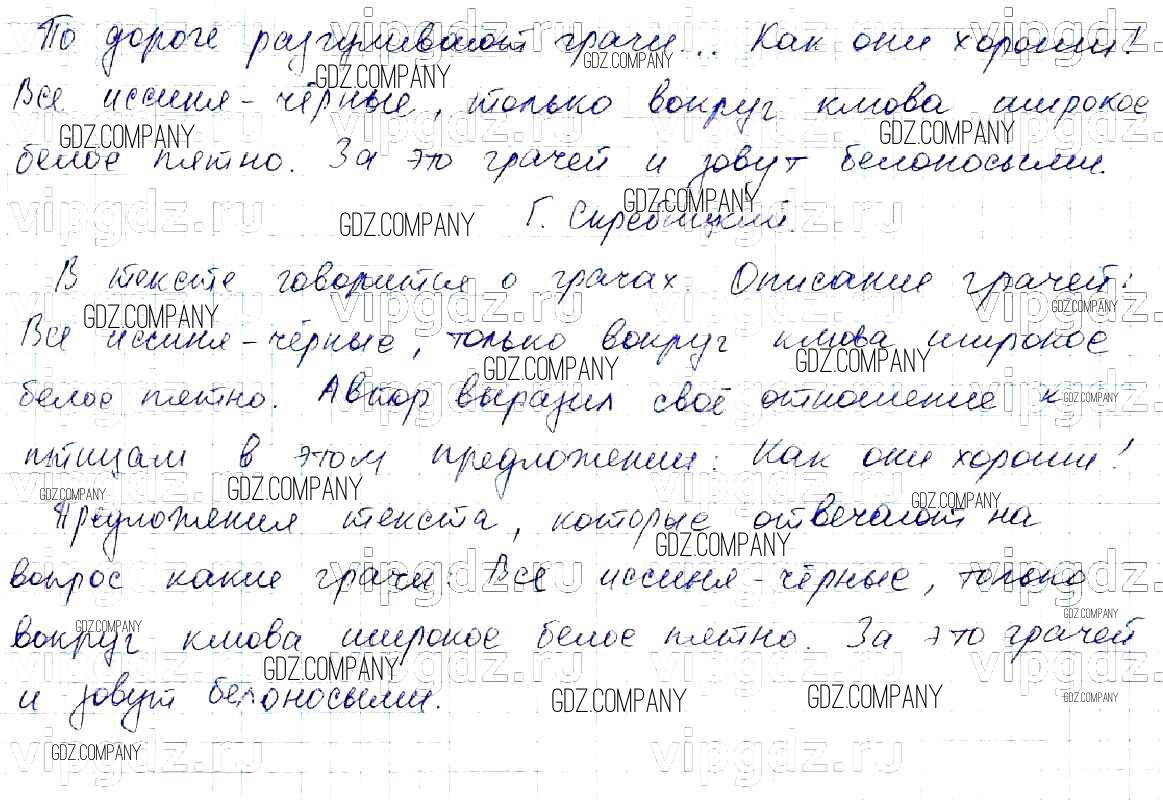 По дороге разгуливают грачи... Как они хороши!
Все иссиня-чёрные, только вокруг клюва широкое
белое пятно. За это грачей и зовут белоносыми.
Г. Скребицкий.
В тексте говорится о грачах. Описание грачей:
Все иссиня-чёрные, только вокруг клюва широкое
белое пятно. Автор выразил своё отношение к
птицам в этом предложении: Как они хороши!
Предложения текста, которые отвечают на
вопрос какие грачи: Все иссиня-чёрные, только
вокруг клюва широкое белое пятно. За это грачей
и зовут белоносыми.